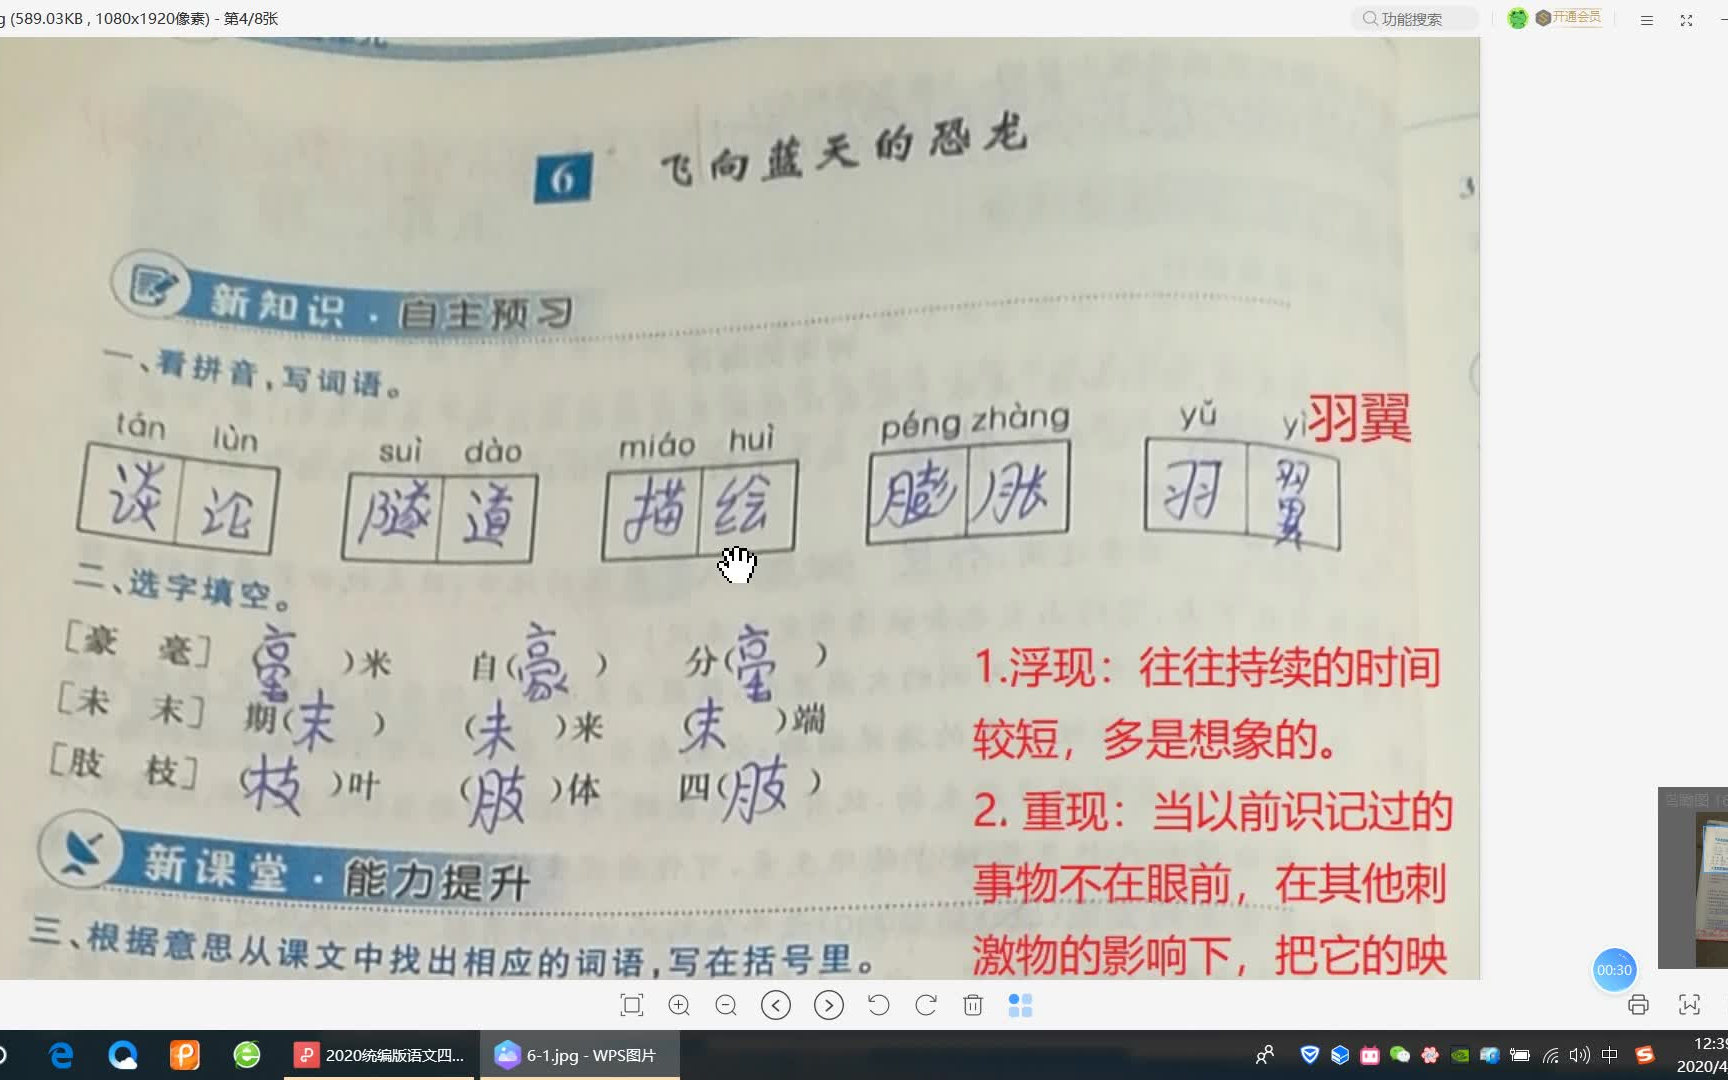 g (589.03KB , 1080x1920像素) - 第4/8张
功能搜索
开通会员
6 飞向蓝天的恐龙
新知识·自主预习
一、看拼音,写词语。
tán lùn suì dào miáo huì péng zhàng yǔ yì 羽翼
谈论 隧道 描绘 膨胀 羽翼
二、选字填空。
[豪 毫] (毫)米 自(豪) 分(毫)
[未 末] 期(末) (未)来 (末)端
[肢 枝] (枝)叶 (肢)体 四(肢)
1.浮现：往往持续的时间
较短，多是想象的。
2. 重现：当以前识记过的
事物不在眼前，在其他刺
激物的影响下，把它的映
新课堂·能力提升
三、根据意思从课文中找出相应的词语,写在括号里。
00:30
2020统编版语文四...
6-1.jpg - WPS图片
中
12:39
2020/4